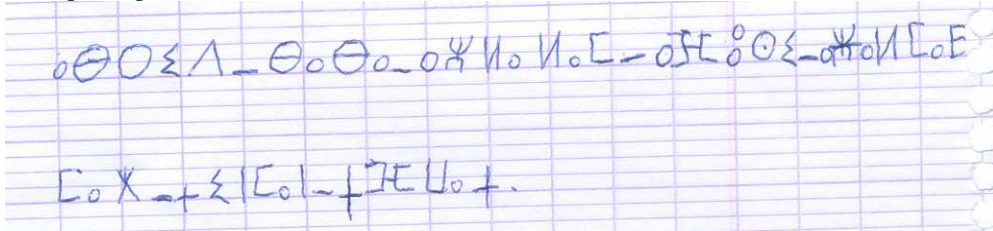 ⴰⴱⵔⵉⴷ_ⴱⴰⴱⴰ_ⴰⵣⵍⴰⵍⴰⵎ_ⴰⴼⵓⵙⵉ_ⴰⵣⴰⵍⵎⴰⴹ
ⵎⴰⵣ_ⵜⵉⵏⵎⴰⵏ_ⵜⴼⵡⴰⵜ.